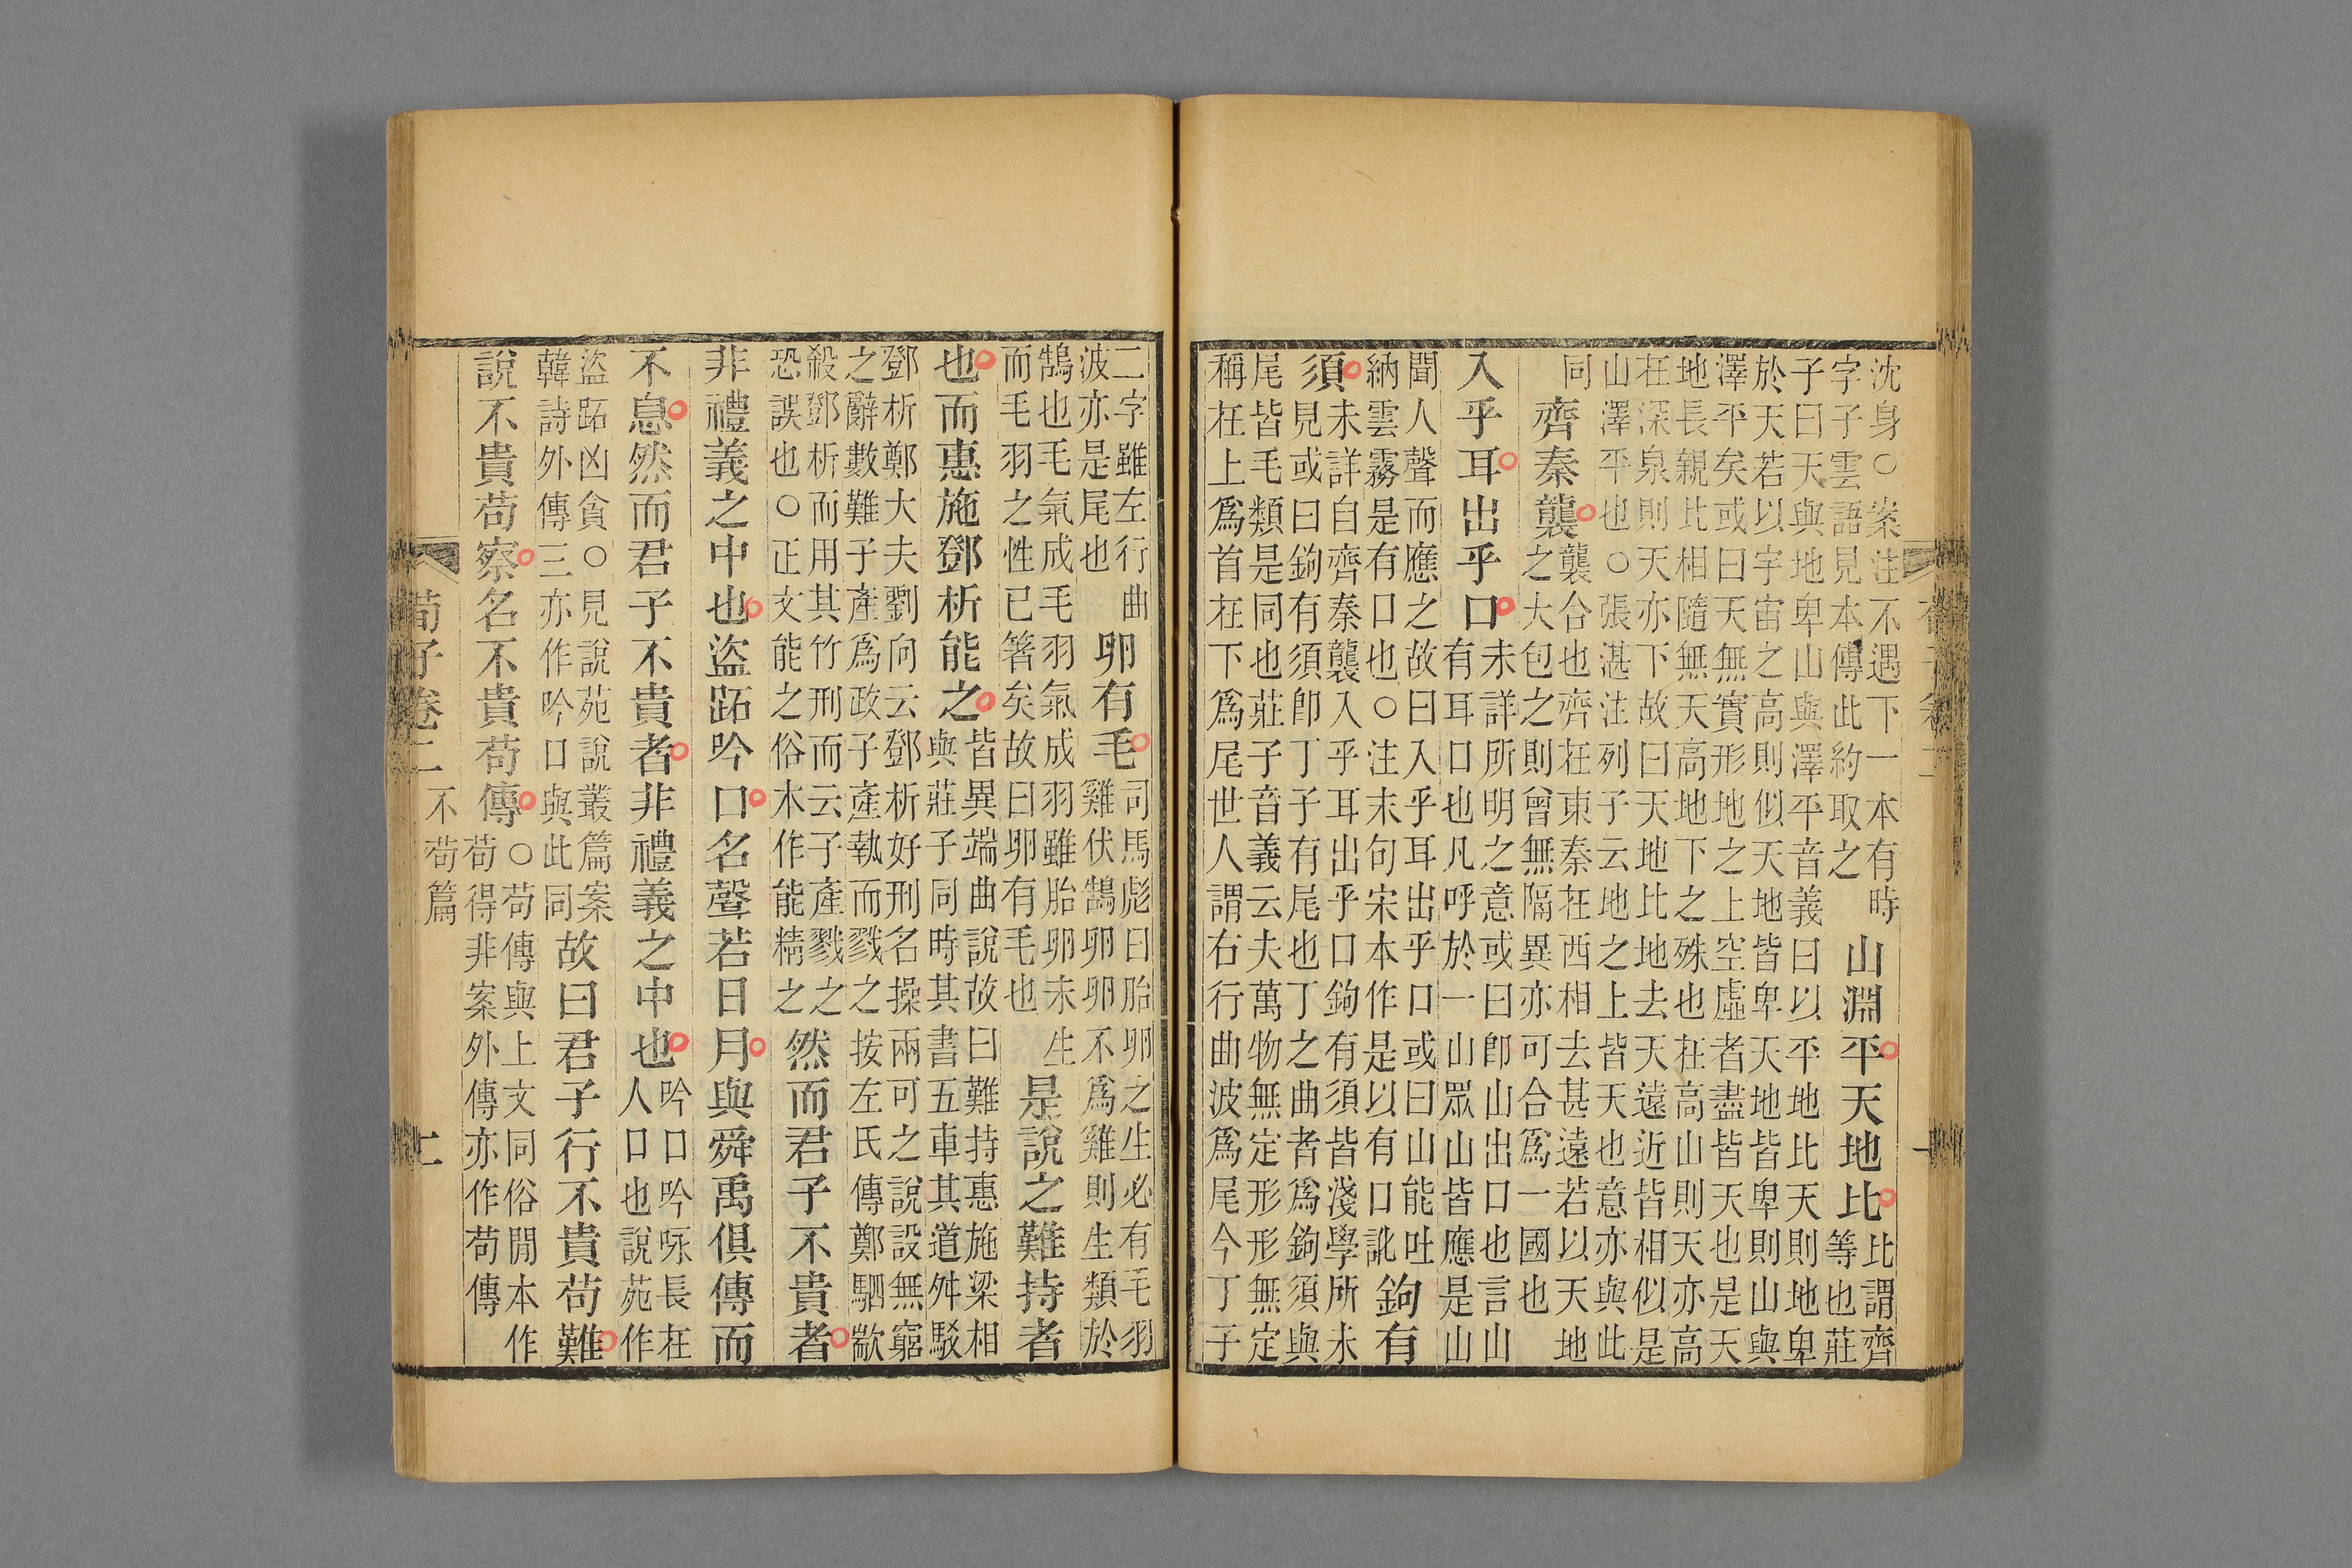 沈身○案注不遇下一本有時
字子雲語見本傳此約取之
山淵平天地比
比謂齊
等也莊
子曰天與地卑山與澤平音義曰以平地比天則地卑
於天若以宇宙之高則似天地皆卑天地皆卑則山與
澤平矣或曰天無實形地之上空虛者盡皆天也是天
地長親比相隨無天高地下之殊也在高山則天亦高
在深泉則天亦下故曰天地比地去天遠近皆相似是
山澤平也○張湛注列子云地之上皆天也意亦與此
同
齊秦襲
襲合也齊在東秦在西相去甚遠若以天地
之大包之則曾無隔異亦可合爲一國也
入乎耳出乎口
未詳所明之意或曰卽山出口也言山
有耳口也凡呼於一山眾山皆應是山
聞人聲而應之故曰入乎耳出乎口或曰山能吐
納雲霧是有口也○注末句宋本作是以有口訛
鉤有
須
未詳自齊秦襲入乎耳出乎口鉤有須皆淺學所未
見或曰鉤有須卽丁子有尾也丁之曲者爲鉤須與
尾皆毛類是同也莊子音義云夫萬物無定形形無定
稱在上爲首在下爲尾世人謂右行曲波爲尾今丁子
二字雖左行曲
波亦是尾也
卵有毛
司馬彪曰胎卵之生必有毛羽
雞伏鵠卵卵不爲雞則生類於
鵠也毛氣成毛羽氣成羽雖胎卵未生
而毛羽之性已箸矣故曰卵有毛也
是說之難持者
也而惠施鄧析能之
皆異端曲說故曰難持惠施梁相
與莊子同時其書五車其道舛駁
鄧析鄭大夫劉向云鄧析好刑名操兩可之說設無窮
之辭數難子產爲政子產執而戮之按左氏傳鄭駟歂
殺鄧析而用其竹刑而云子產戮之
恐誤也○正文能之俗木作能精之
然而君子不貴者
非禮義之中也盜跖吟口名聲若日月與舜禹俱傳而
不息然而君子不貴者非禮義之中也
吟口吟咏長在
人口也說苑作
盜跖凶貪○見說苑說叢篇案
韓詩外傳三亦作吟口與此同
故曰君子行不貴苟難
說不貴苟察名不貴苟傳
○苟傳與上文同俗閒本作
苟得非案外傳亦作苟傳
荀子卷二 不苟篇 二